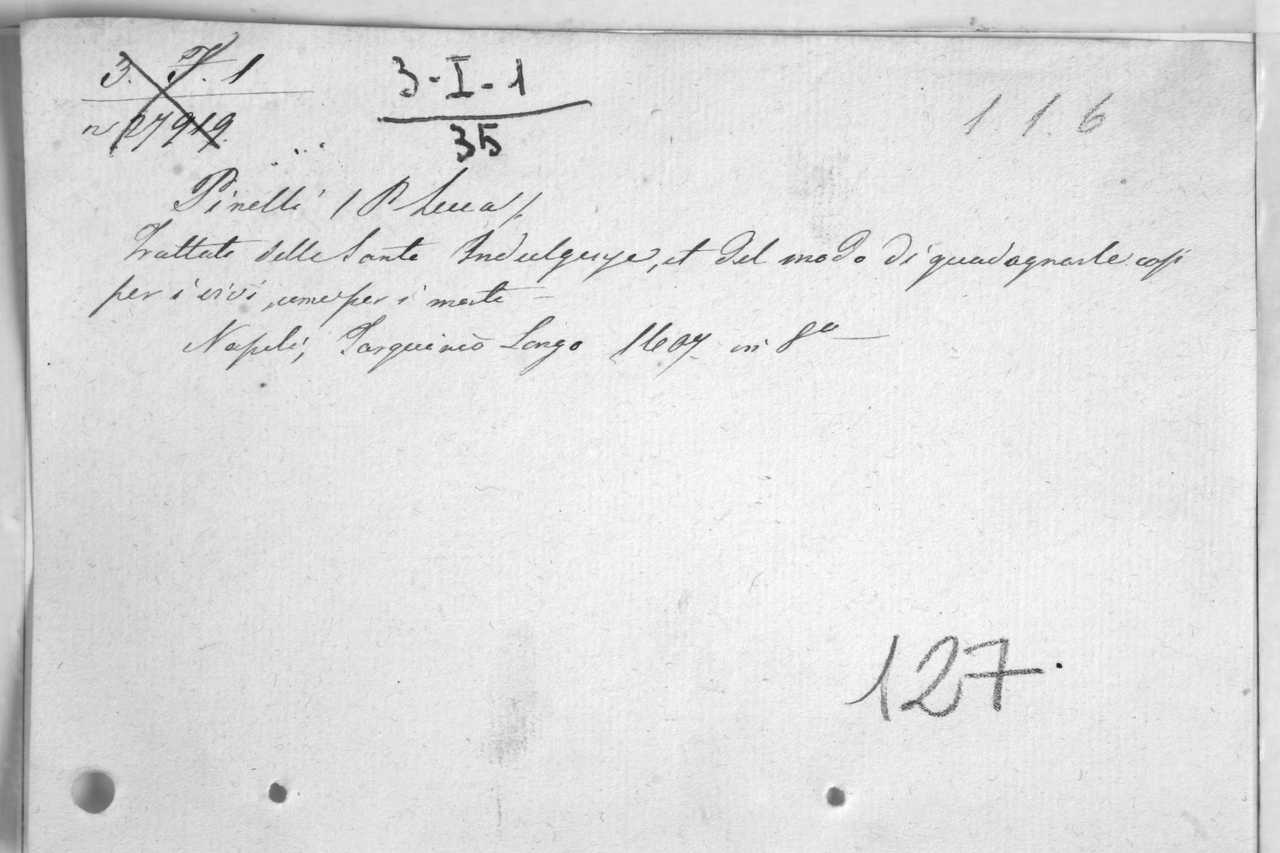 3. V. 1
3-I-1
35
1. 1. 6
n 27919.
Pinelli (P Luca)
Trattato delle Sante Indulgenze, et del modo di guadagnarle così
per i vivi, come per i morti -
Napoli, Tarquinio Longo 1607 in 8º -
127.